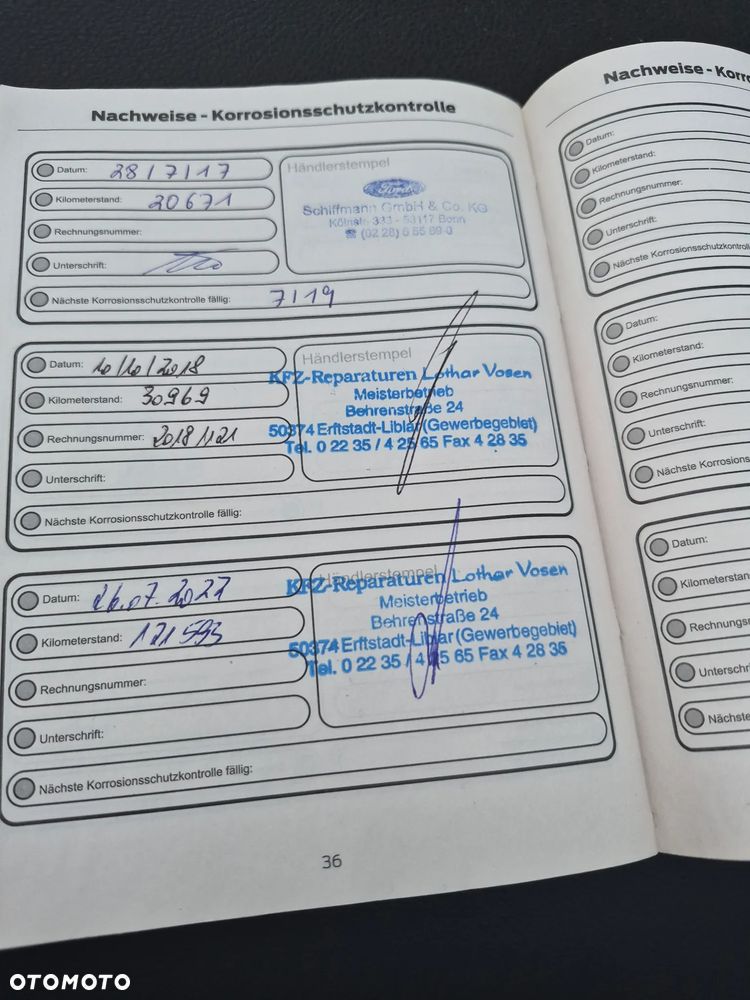 Nachweise - Korrosionsschutzkontrolle
Datum: 28/7/17
Kilometerstand: 20671
Rechnungsnummer:
Unterschrift:
Nächste Korrosionsschutzkontrolle fällig: 7/19
Händlerstempel
Ford
Schiffmann GmbH & Co. KG
Kölnstr. 333 - 53117 Bonn
☎ (02 28) 6 55 69 0
Datum: 10/10/2018
Kilometerstand: 30969
Rechnungsnummer: 2018 1121
Unterschrift:
Nächste Korrosionsschutzkontrolle fällig:
Händlerstempel
KFZ-Reparaturen Lothar Vosen
Meisterbetrieb
Behrenstraße 24
50374 Erftstadt-Liblar (Gewerbegebiet)
Tel. 0 22 35 / 4 25 65 Fax 4 28 35
Datum: 26.07.2022
Kilometerstand: 121593
Rechnungsnummer:
Unterschrift:
Nächste Korrosionsschutzkontrolle fällig:
Händlerstempel
KFZ-Reparaturen Lothar Vosen
Meisterbetrieb
Behrenstraße 24
50374 Erftstadt-Liblar (Gewerbegebiet)
Tel. 0 22 35 / 4 25 65 Fax 4 28 35
36
Nachweise - Korr
Datum:
Kilometerstand:
Rechnungsnummer:
Unterschrift:
Nächste Korrosionsschutzkontroll
Datum:
Kilometerstand:
Rechnungsnummer:
Unterschrift:
Nächste Korrosions
Datum:
Kilometerstan
Rechnungs
Unterschri
Nächste
OTOMOTO